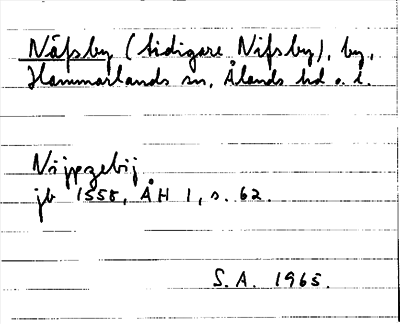 Näfsby (tidigare Nifsby), by,
Hammarlands sn, Ålands hd o. l.
Näjpzebij
jb 1558, ÅH 1, s. 62.
S.A. 1965.